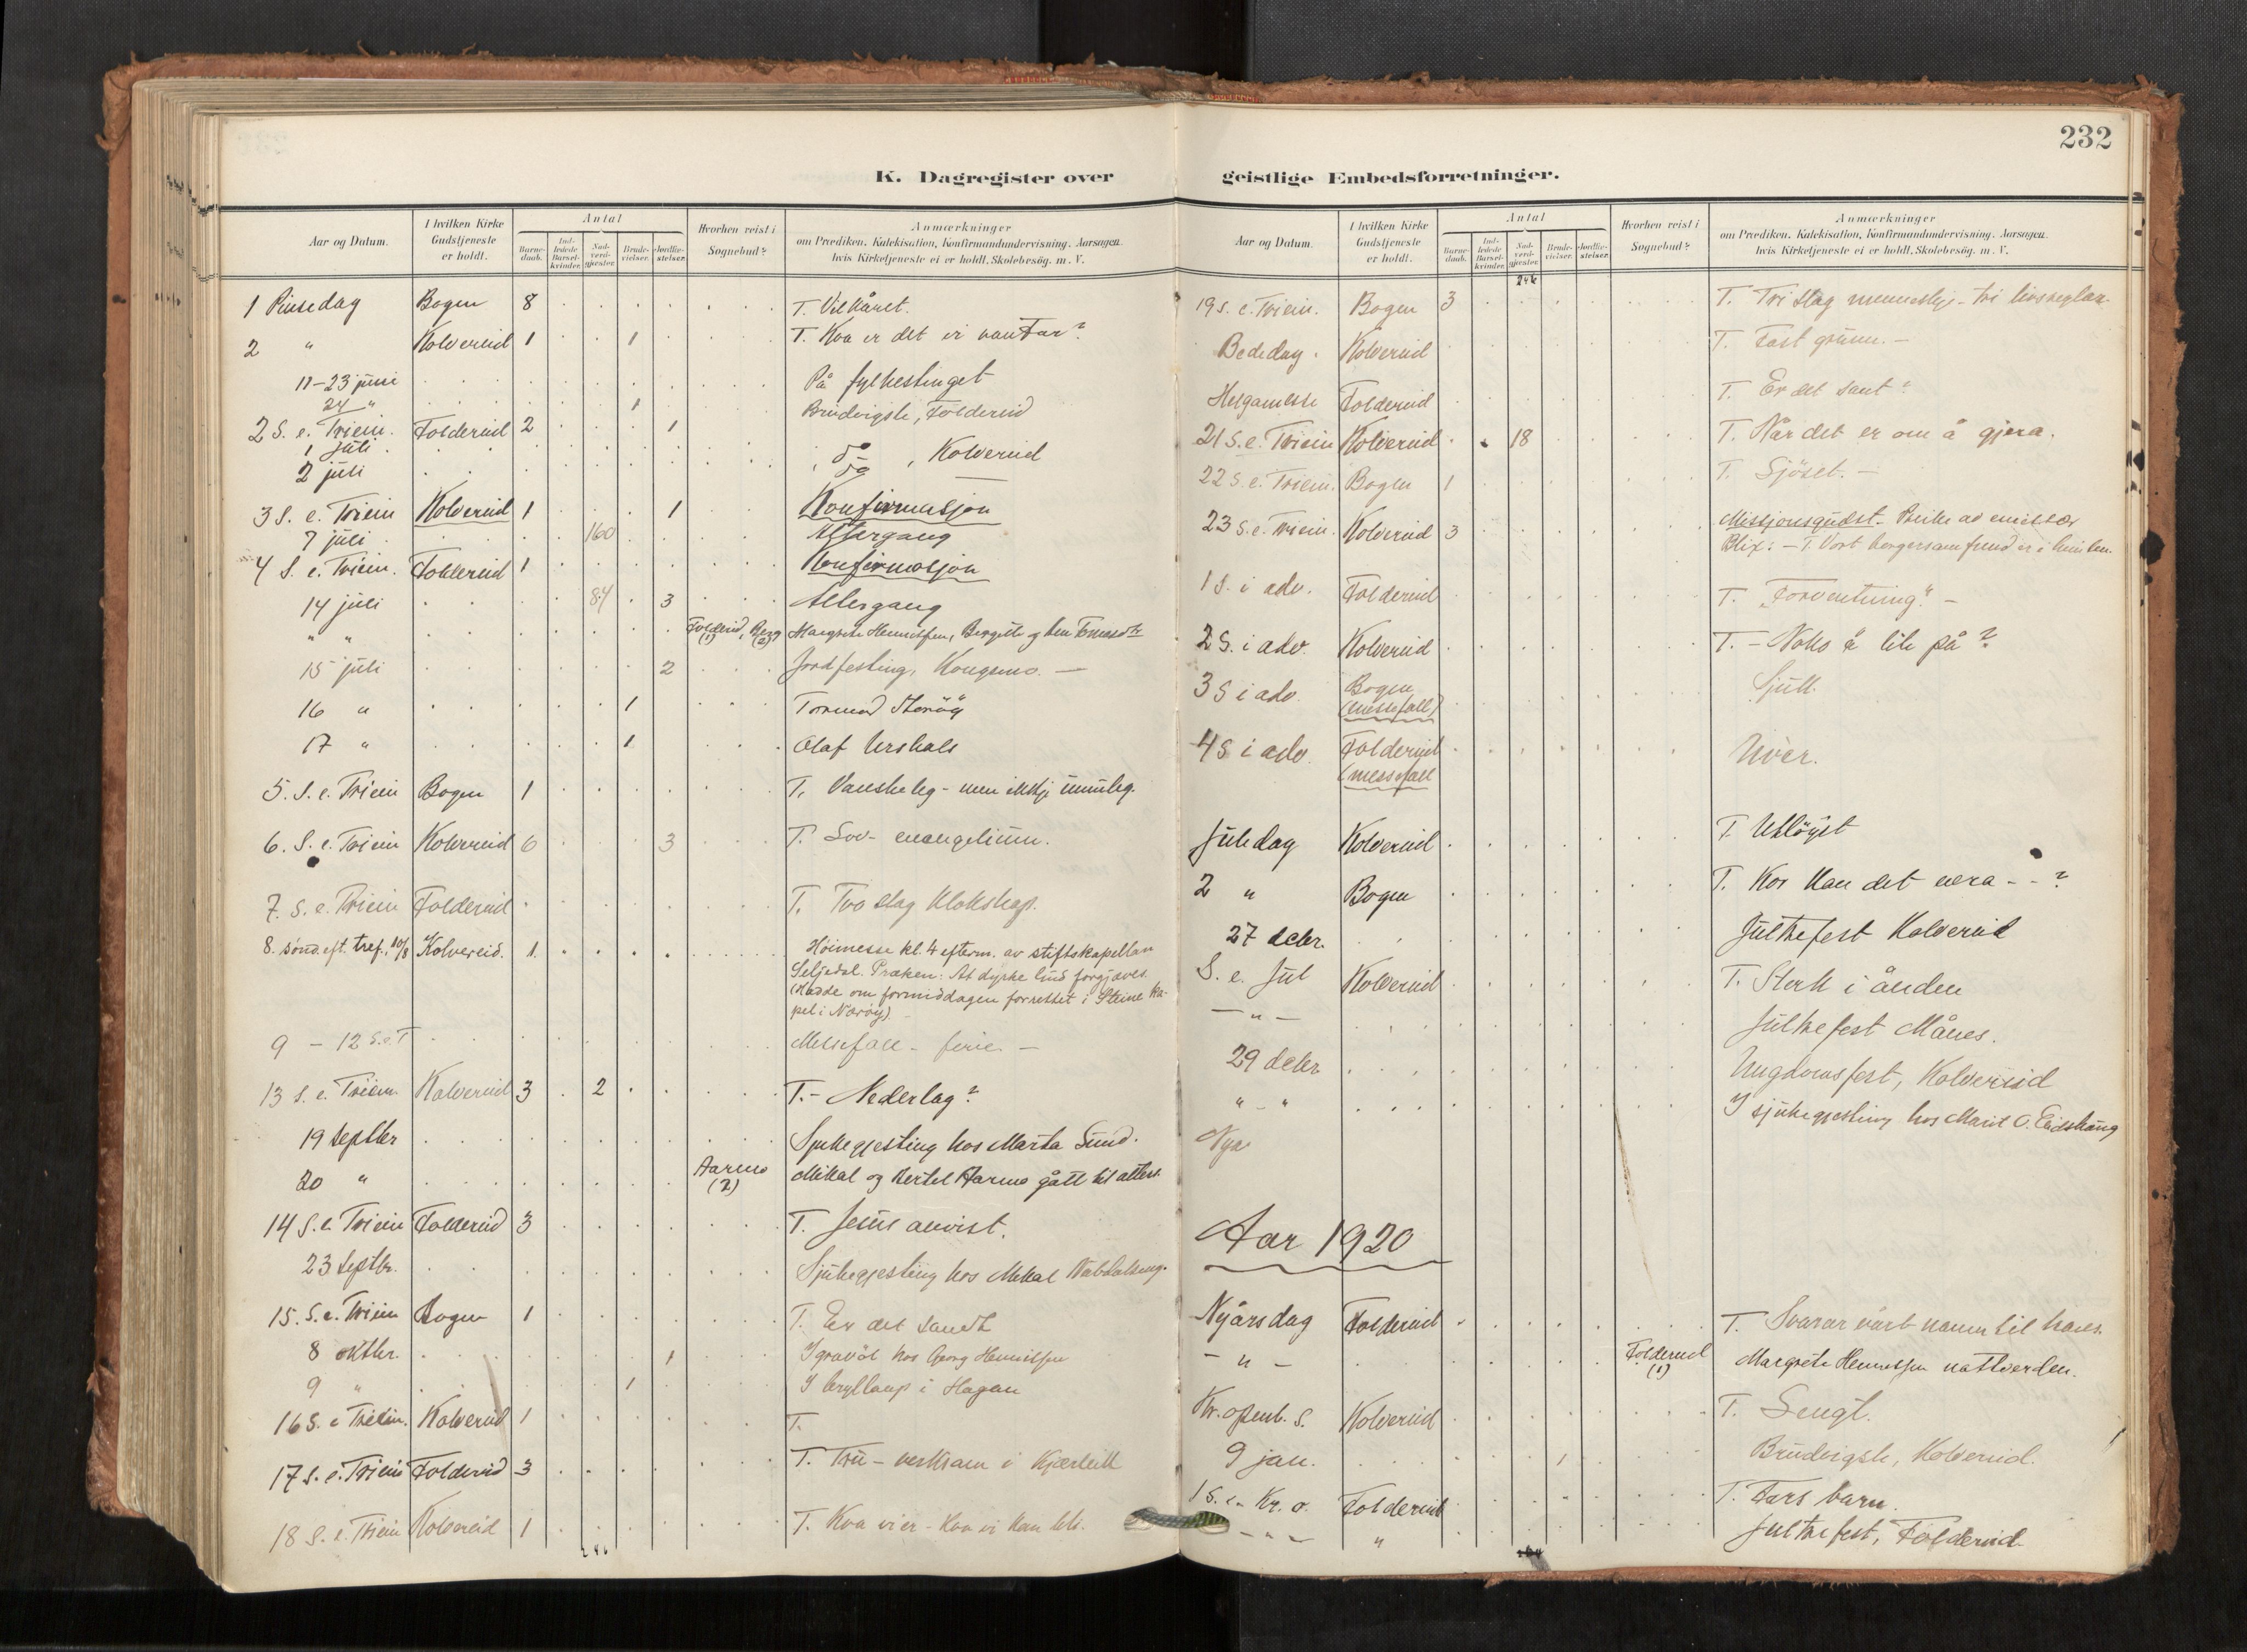 232
K. Dagregister over geistlige Embedsforretninger.
Aar og Datum.
I hvilken Kirke Gudstjeneste er holdt.
Antal
Barne-daab.
Ind-ledede Barsel-kvinder.
Nad-verd-gjester.
Brude-vielser.
Jordfæ-stelser.
Hvorhen reist i Sognebud?
Anmærkninger
om Prædiken, Katekisation, Konfirmandundervisning. Aarsagen
hvis Kirketjeneste ei er holdt, Skolebesög. m. V.
1 Pinsedag Bogen 8 T. Vilkåret.
2 " Kolvereid 1 1 T. Kva er det vi vantar?
11-23 juni På fylkestinget
24 " 1 Brudvigsle, Foldereid
2 S. e. Trein. Foldereid 2 1
1 juli. do, Kolvereid
2 juli do
3 S. e. Trein Kolvereid 1 1 Konfirmasjon
7 juli 160 Altergang
4 S. e. Trein. Foldereid 1 Konfirmasjon
14 juli 84 3 Altergang
" " Foldereid (1), Berg (2) Margrete Henriksen, Bergitte og
15 juli 2 Jordfesting, Kongsmo. —
16 " 1 Tormod Storöy
17 " 1 Olaf Urskals
5. S. e. Trein Bogen 1 T. Vanskeleg - men ikkje umuleg.
6. S. e. Trein Kolvereid 6 3 T. Lov- evangelium.
7. S. e. Trein Foldereid T. Tvo slag klokskap.
8. sønd. eft. tref., 10/8 Kolvereid. 1. Höimesse kl. 4 efterm. av stiftskapellan
Seljedal. Præken: At dyrke Gud forgjæves.
(Hadde om formiddagen forrettet i Steine ka-
pel i Nærøy).
9 - 12 S.e.T Messefall - ferie. —
13 S. e. Trein. Kolvereid 3 2 T. - Nederlag?
19 septbr Sjukegjesting hos Marta Sund.
20 " Aarmo (2) Mikal og Kertel Aarmo gått til alters.
14 S.e. Trein Foldereid 3 T. Jesus anvist.
23 septbr. Sjukegjesting hos Mikal
15. S.e. Trein Bogen 1 T. Er det sandt
8 oktbr. 1 I gravöl hos Georg Henriksen
9 " 1 I bryllaup i Hagan
16 S. e Trein. Kolvereid 1 T.
17 S. e. Trein Foldereid 3 T. Tru - verksam i kjærleik
18 S. e. Trein Kolvereid 1 T. Kva vi er - kva vi kan bli.
246
Aar og Datum.
I hvilken Kirke Gudstjeneste er holdt.
Antal
Barne-daab.
Ind-ledede Barsel-kvinder.
Nad-verd-gjester.
Brude-vielser.
Jordfæ-stelser.
Hvorhen reist i Sognebud?
Anmærkninger
om Prædiken, Katekisation, Konfirmandundervisning. Aarsagen
hvis Kirketjeneste ei er holdt, Skolebesög. m. V.
246
19 S. e. Trein. Bogen 3 T. Tri slag menneskje - tri livsreglar.
Bededag. Kolvereid T. Fast grunn. —
Helgamesse Foldereid T. Er det sant?
21 S. e. Trein Kolvereid 18 T. Når det er om å gjera.
22 S. e. Trein. Bogen 1 T. Sjöset. —
23 S. e. Trein. Kolvereid 3 Missjonsgudst. Preike av emissær
Blix: - T. Vort borgersamfund er i himlen.
1 S. i adv. Foldereid T. "Forventning." —
2 S. i adv. Kolvereid T. - Noko å lite på?
3 S i adv. Bogen (messefall) Sjuk.
4 S i adv. Foldereid (messefall Uver.
Juledag Kolvereid T. Utlöyst
2 " Bogen T. Kor kan det vera - - ?
27 decbr. Jultrefest Kolvereid
S. e. Jul Kolvereid T. Sterk i ånden
— " — Jultrefest Månes.
29 decbr Ungdomsfest, Kolvereid
" - " I sjukegjesting hos Marit O. Eidshaug
Nya
Aar 1920
Nyårsdag Foldereid T. Svarar vårt namn til hans.
— " — Foldereid (1) Margrete Henriksen nattverden.
Kr. openb. S. Kolvereid T. Lengt.
9 jan. 1 Brudvigsle, Kolvereid.
1 S. e. Kr. o. Foldereid T. Fars barn.
— " — " Jultrefest, Foldereid.